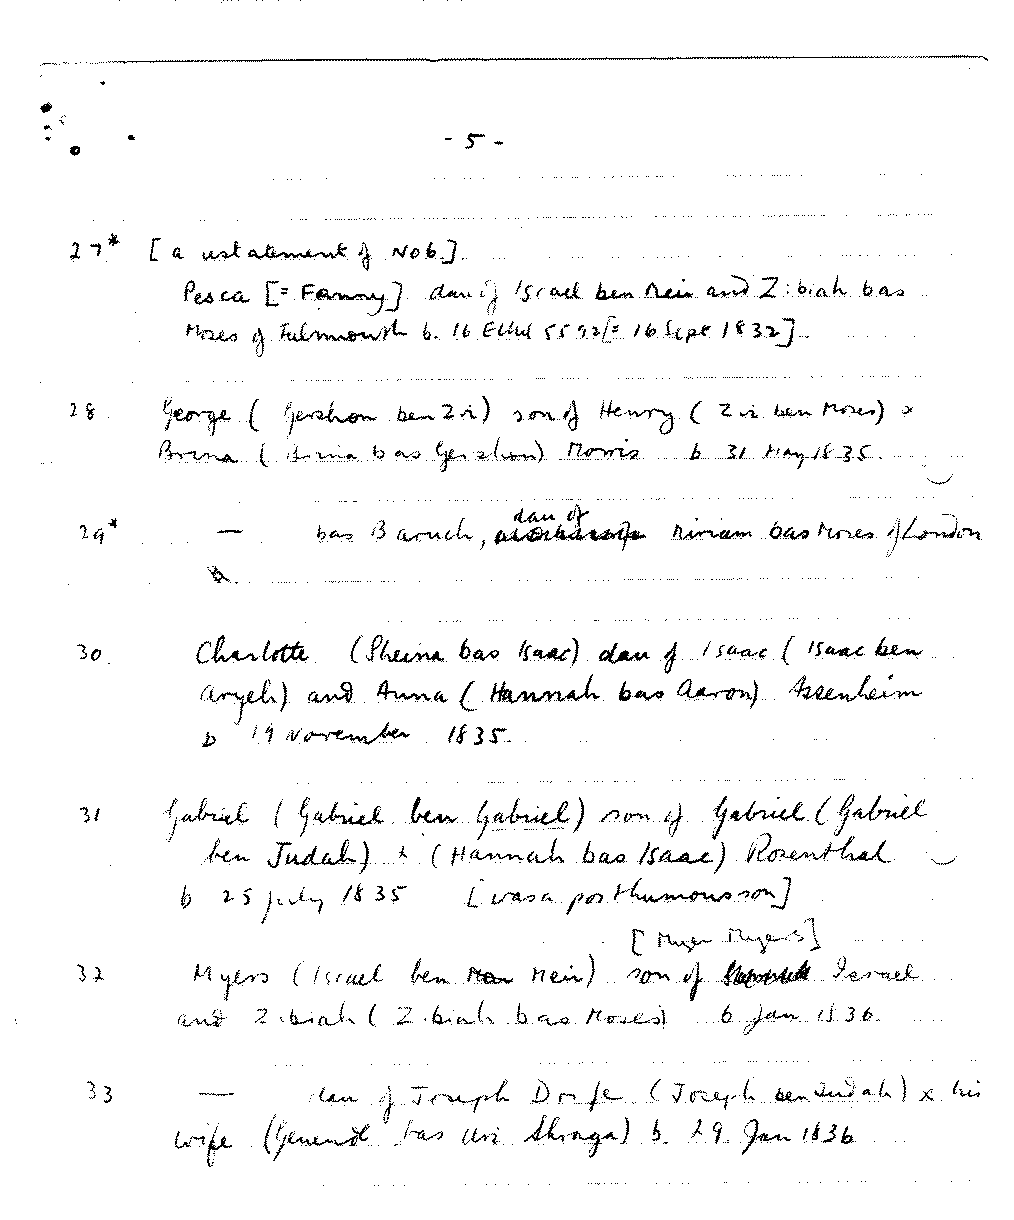 - 5 -
27* [a restatement of No 6.]
Pesca [= Fanny] dau of Israel ben Meir and Zibiah bas
Moses of Falmouth b. 16 Ellul 5592 [= 16 Sept 1832]
28 George (Gershon ben Zvi) son of Henry (Zvi ben Moses) &
Brina (Brina bas Gershon) Morris b 31 May 1835.
29* — bas Baruch, dau of Miriam bas Moses of London
30 Charlotte (Sheina bas Isaac) dau of Isaac (Isaac ben
Aryeh) and Anna (Hannah bas Aaron) Assenheim
b 19 November 1835.
31 Gabriel (Gabriel ben Gabriel) son of Gabriel (Gabriel
ben Judah) & (Hannah bas Isaac) Rosenthal
b 25 July 1835 [was a posthumous son]
[Myer Myers]
32 Myers (Israel ben Meir) son of Israel
and Zibiah (Zibiah bas Moses) 6 Jan 1836.
33 — dau of Joseph (Joseph ben Judah) & his
wife (Genendl bas Uri Shraga) b. 29 Jan 1836